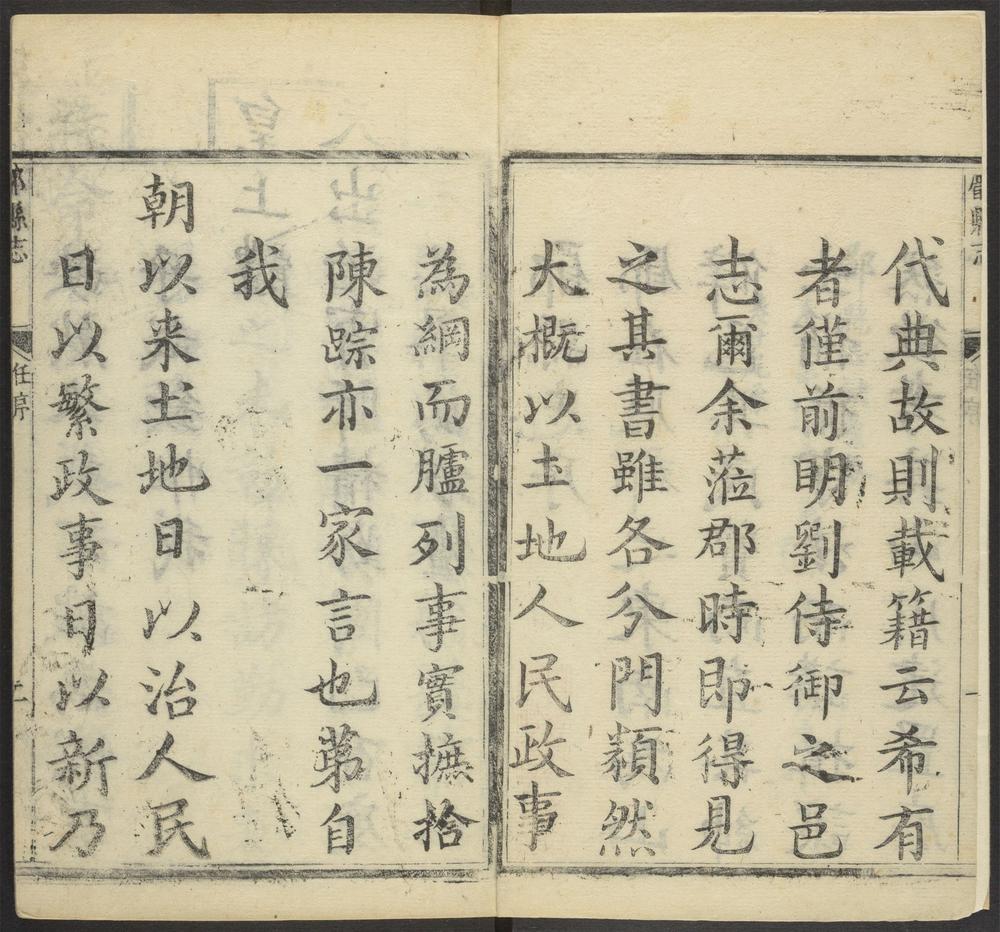 代典故則載籍云希有
者僅前明劉侍御之邑
志爾余蒞郡時即得見
之其書雖各分門類然
大概以土地人民政事
為綱而臚列事實摭拾
陳踪亦一家言也第自
我
朝以来土地日以治人民
日以繁政事日以新乃
縣志
任序
二